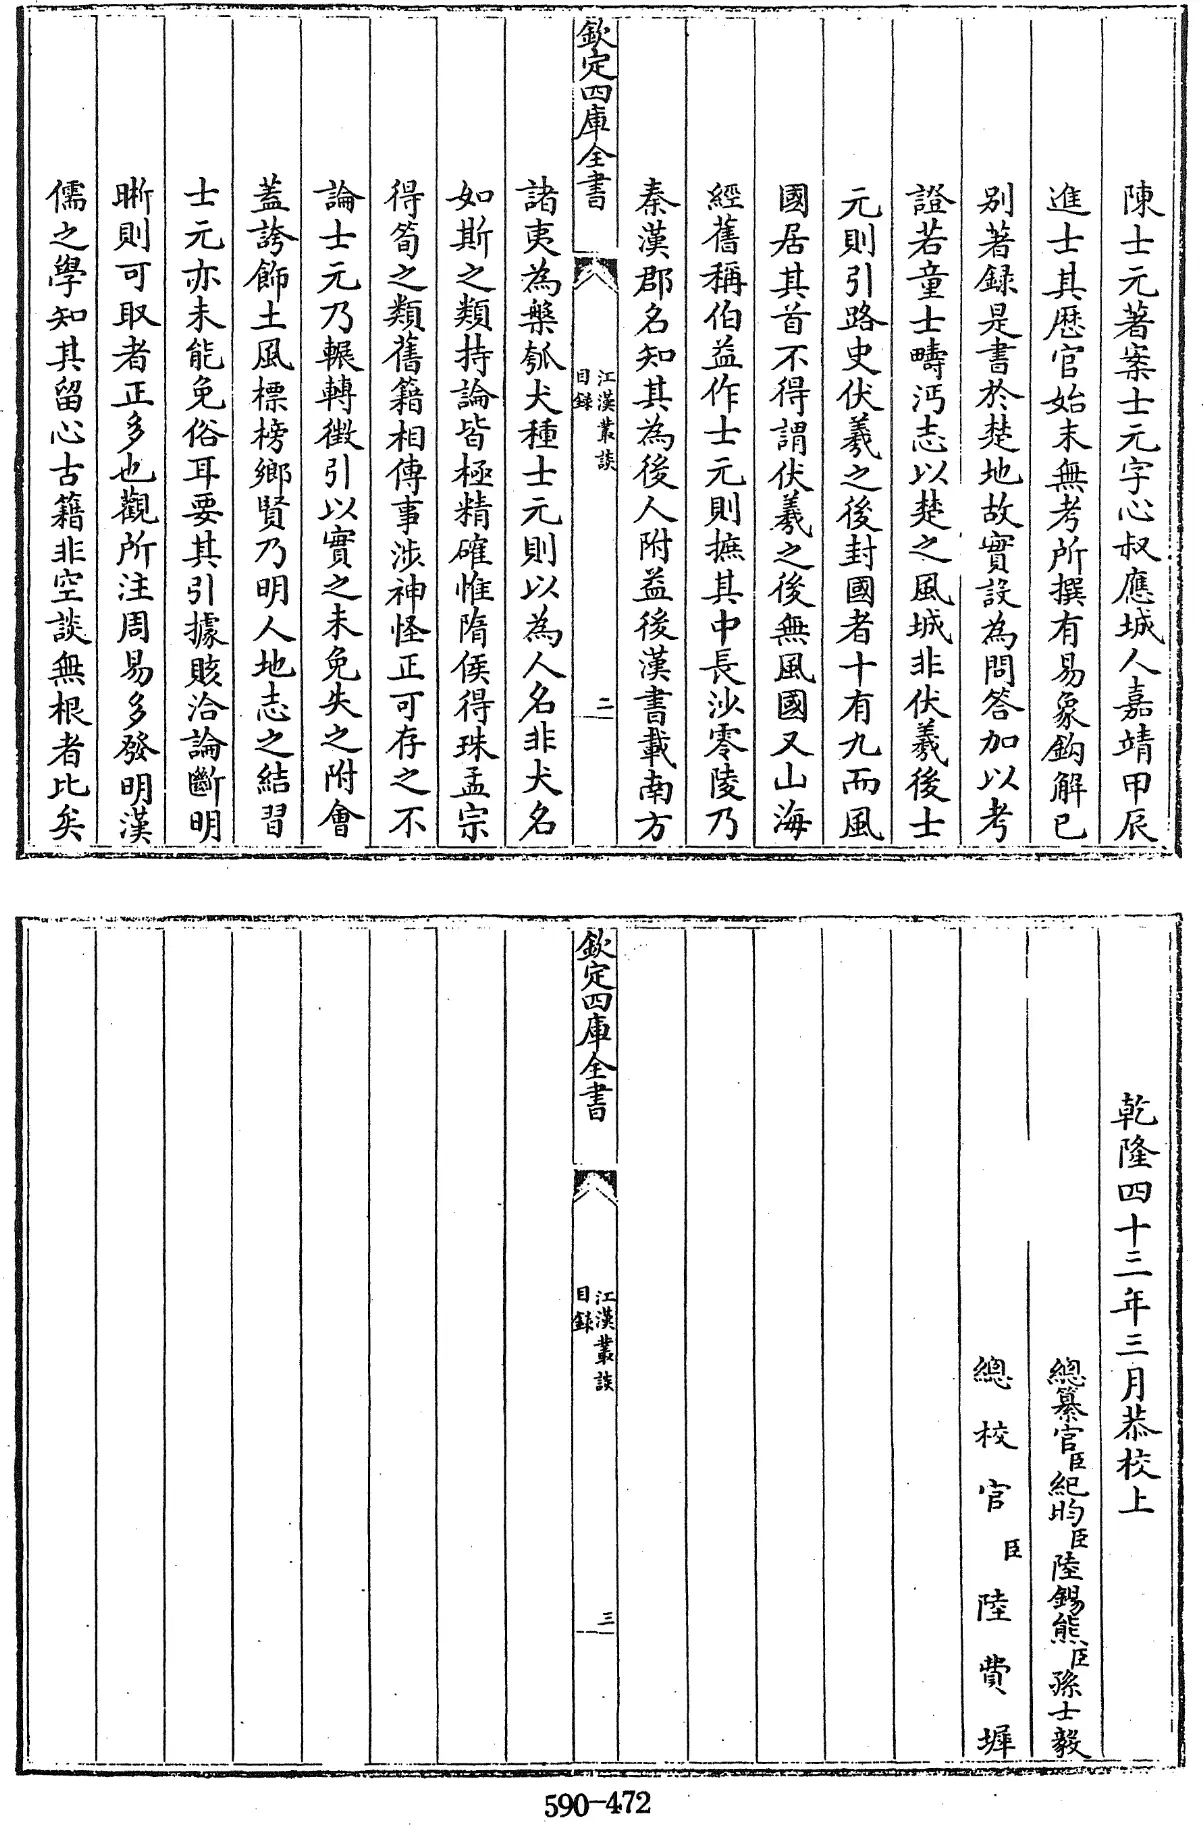 陳士元著案士元字心叔應城人嘉靖甲辰
進士其厯官始末無考所撰有易象鈎解已
别著録是書於楚地故實設為問答加以考
證若童士疇沔志以楚之風城非伏羲後士
元則引路史伏羲之後封國者十有九而風
國居其首不得謂伏羲之後無風國又山海
經舊稱伯益作士元則摭其中長沙零陵乃
秦漢郡名知其為後人附益後漢書載南方
欽定四庫全書
江漢叢談
目録
二
諸夷為槃瓠犬種士元則以為人名非犬名
如斯之類持論皆極精確惟隋侯得珠孟宗
得筍之類舊籍相傳事涉神怪正可存之不
論士元乃輾轉徵引以實之未免失之附會
蓋誇飾土風標榜鄉賢乃明人地志之結習
士元亦未能免俗耳要其引據賅洽論斷明
晰則可取者正多也觀所注周易多發明漢
儒之學知其留心古籍非空談無根者比矣
乾隆四十三年三月恭校上
總纂官臣紀昀臣陸錫熊臣孫士毅
總校官臣陸費墀
欽定四庫全書
江漢叢談
目録
三
590-472